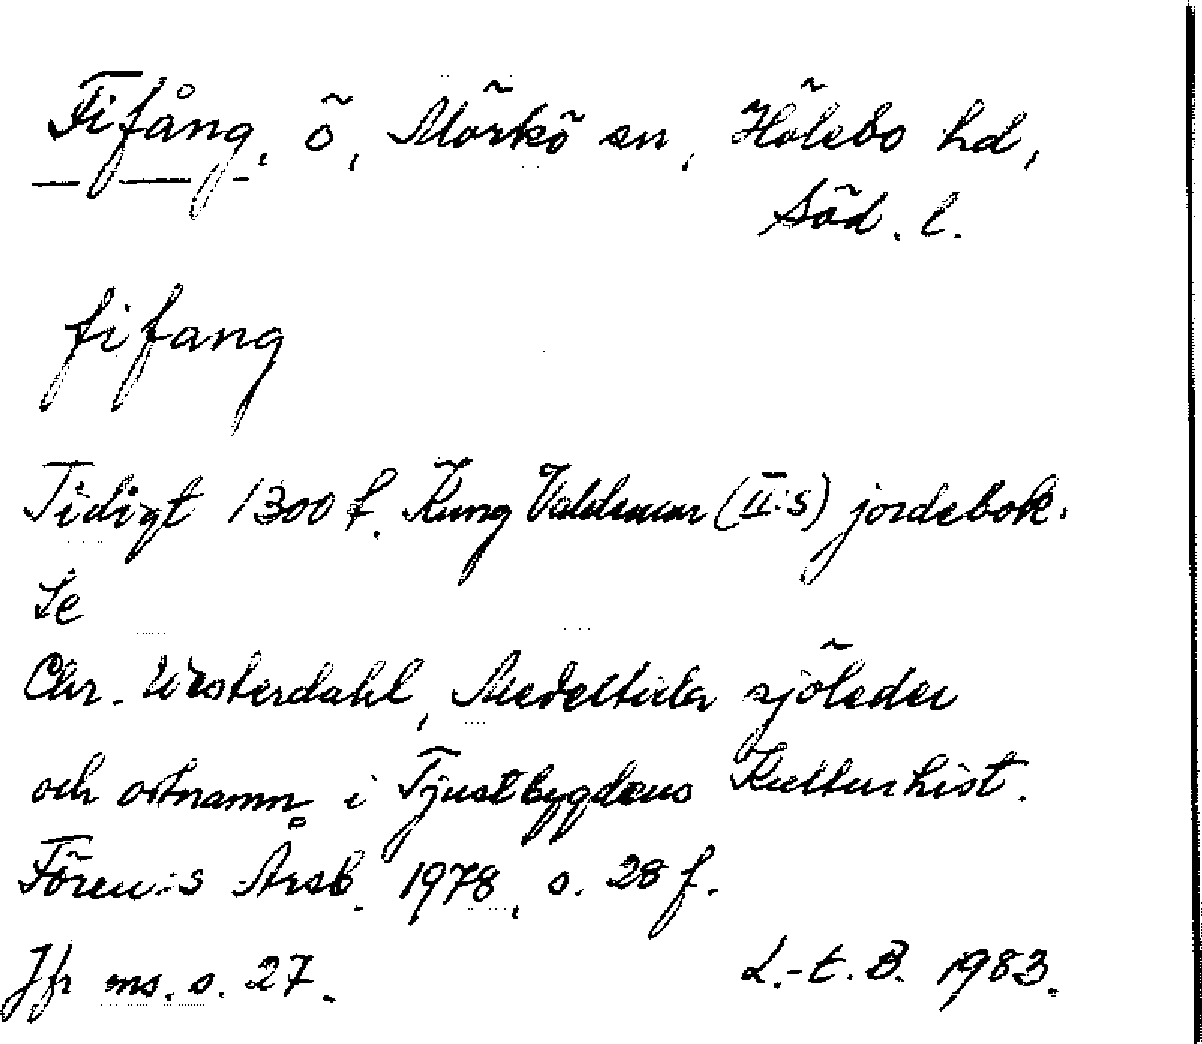 Fifång, ö, Mörkö sn, Hölebo hd,
Söd. l.
fifang
Tidigt 1300 f. Kung Valdemar (II:s) jordebok.
Se
Chr. Westerdahl, Medeltida sjöleder
och ortnamn i Tjustbygdens Kulturhist.
Fören:s Årsb. 1978, s. 28 f.
Jfr ms. s. 27.
L.-t. B. 1983.